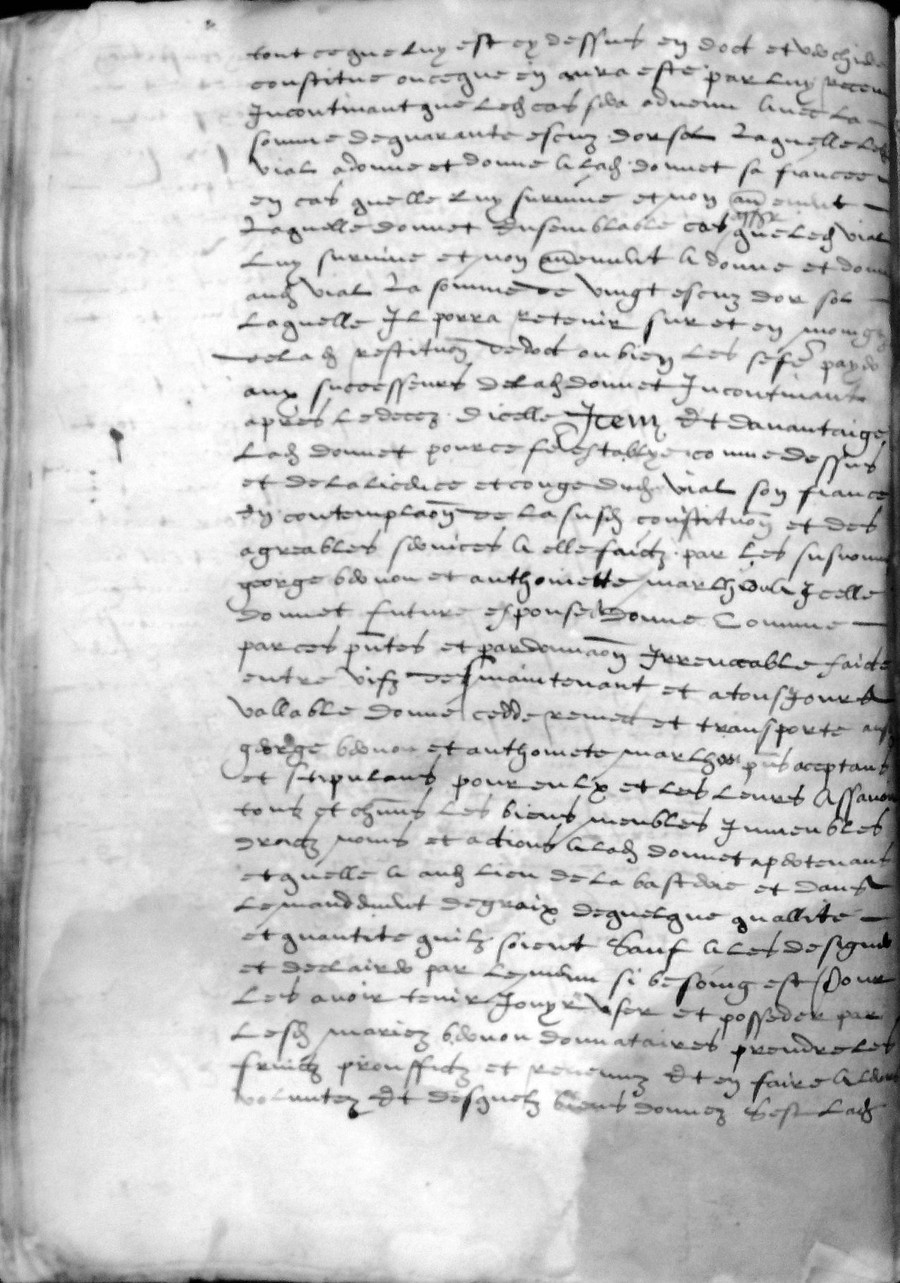 tout ce que luy est cy dessus en doct et verchiere
constitue ou ce que en aura este par luy receu
Incontinant que led cas sera advenu avec la
somme de quarante escuz dor sol laquelle led
vial a donne et donne a lad donnet sa fiancee
en cas quelle luy survive et non autrement
laquelle donnet en semblable cas que led vial
luy survive et non autrement a donne et donne
aud vial la somme de vingt escuz dor sol
laquelle Il porra retenir sur et en moings
de lad restituon de doct ou bien les se fe payer
aux successeurs de lad donnet Incontinant
apres le decez dicelle Item Et davantaige
lad donnet pource fe establye comme dessus
et de la licence et conge dud vial son fiance
En contemplaon de la susd constituon et des
agreables services a elle faictz par les susnommes
george et anthoinette Icelle
donnet future esponse donne comme
par ces pntes et par donnaon Irrevocable faicte
entre vifz des maintenant et a tousjours
vallable donne cedde remect et transporte ausd
george et anthoinete pns aceptans
et stipulans pour eulx et les leurs Assavoir
tous et chuns les biens meubles Inmeubles
droictz noms et actions a lad donnet apertenans
et quelle a aud lieu de la bastide et dans
le mandement de graix de quelque quallite
et quantite quilz soient Sauf a les designer
et declairer par le menu si besoing est Pour
les avoir tenir Jouyr User et posseder par
lesd mariez donnataires prendre les
fruictz prouffictz et revenuz Et en faire a leurs
voluntez Et desquelz biens donnez Sest lad